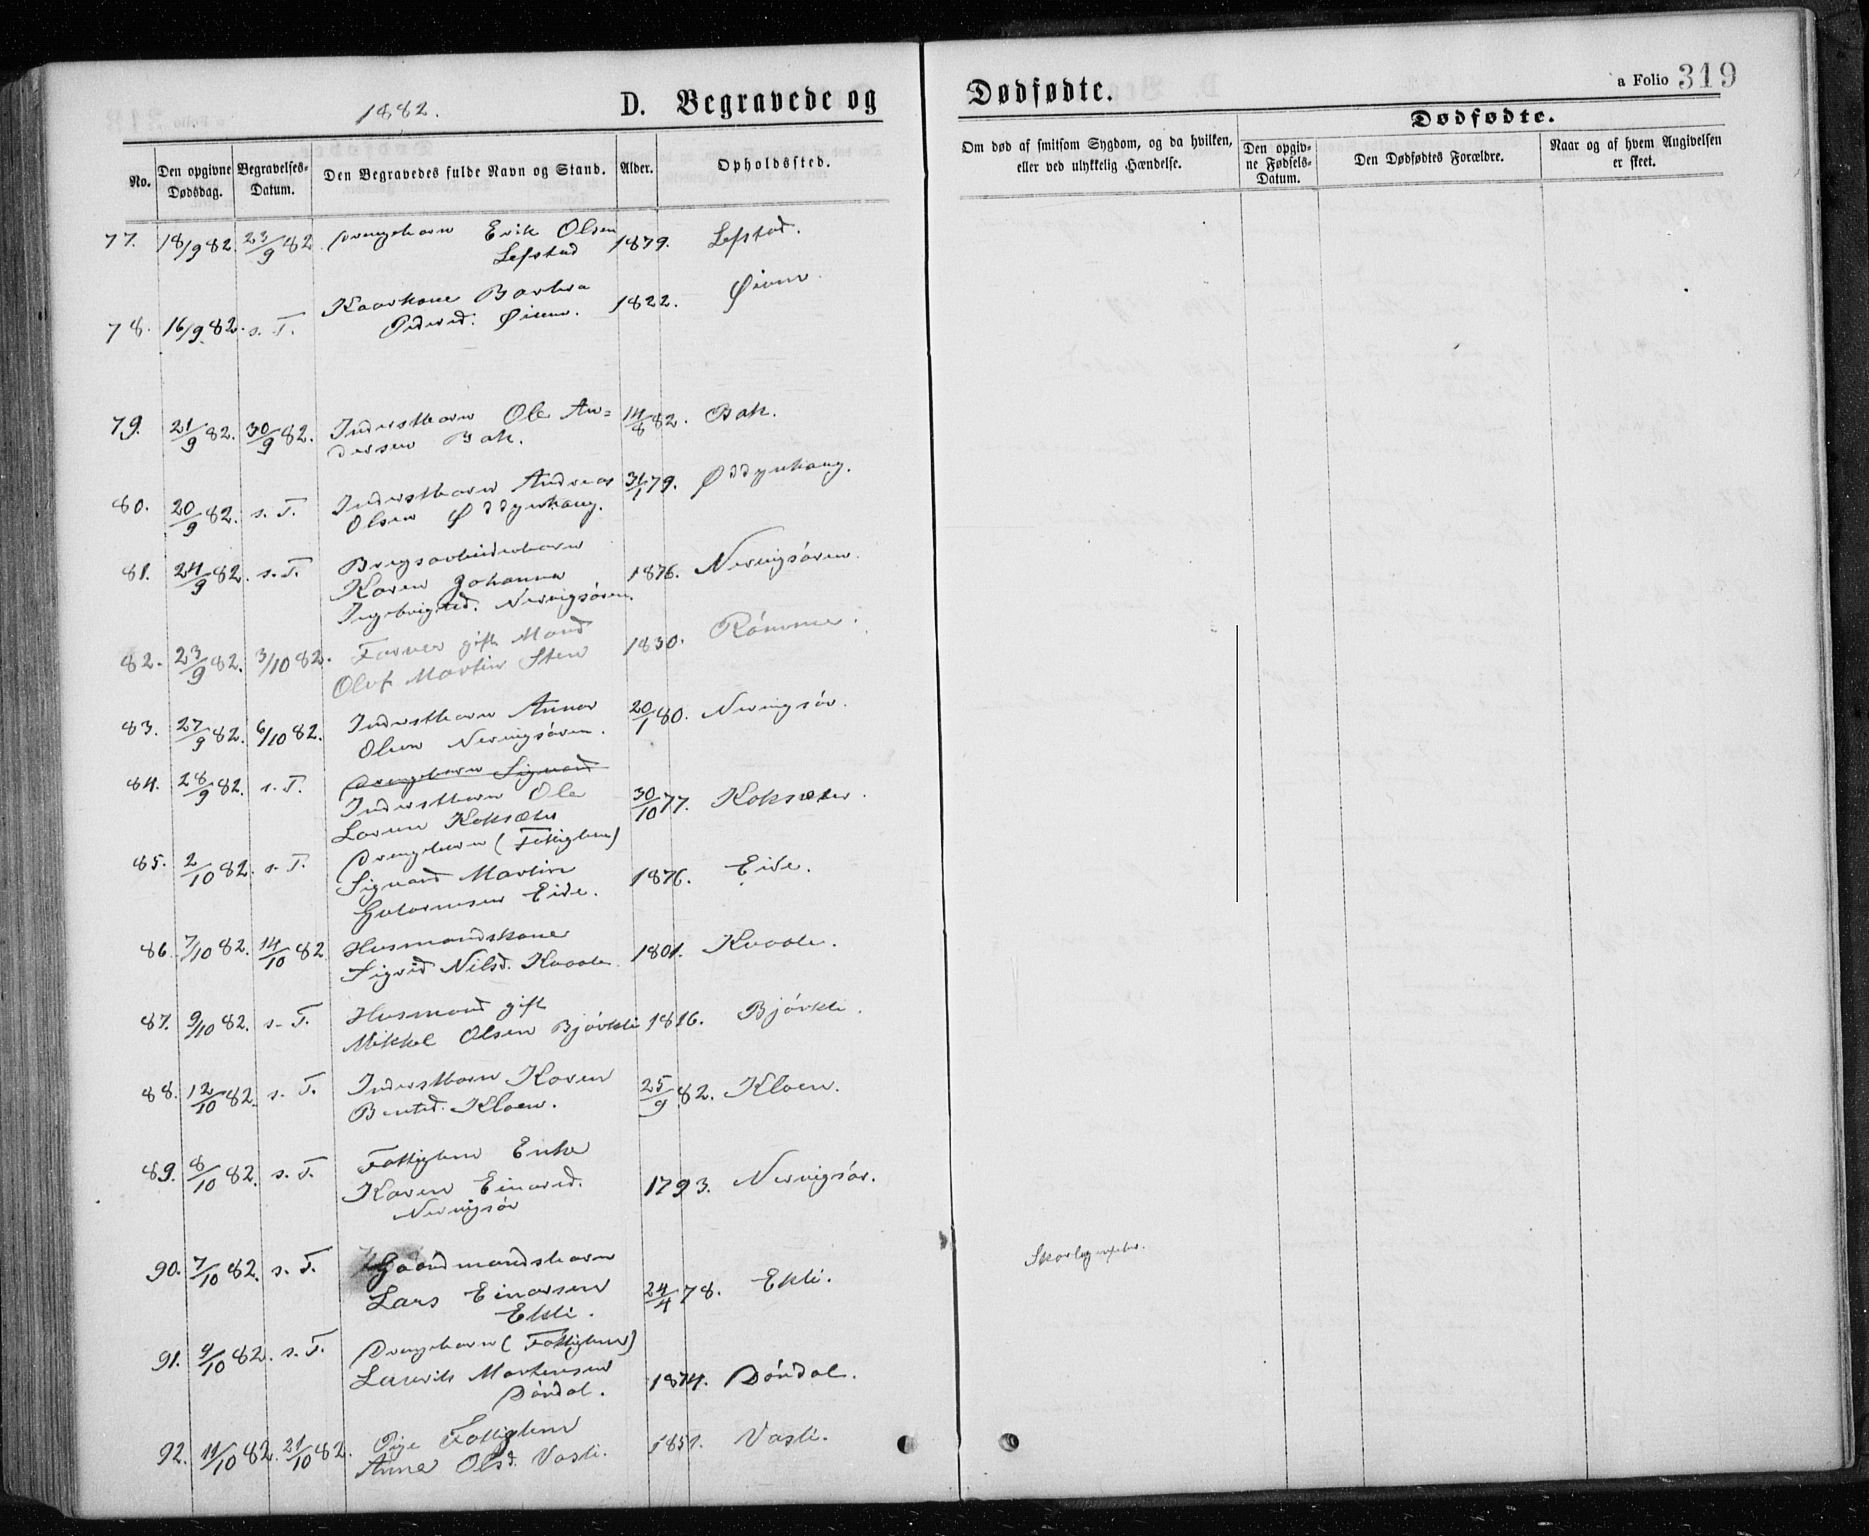 1882.
D. Begravede og
Dødfødte.
a Folio 319
No.
Den opgivne Dødsdag.
Begravelses-Datum.
Den Begravedes fulde Navn og Stand.
Alder.
Opholdssted.
Om død af smitsom Sygdom, og da hvilken,
eller ved ulykkelig Hændelse.
Dødfødte.
Den opgiv-
ne Fødsels-
Datum.
Den Dødfødtes Forældre.
Naar og af hvem Angivelsen
er skeet.
77. 18/9 82. 23/9 82 Drengebarn Erik Olsen 1879. Lefstad.
Lefstad
78. 16/9 82. s. T. Kaarkone Barbra 1822. Øien
Pedersd. Øien.
79. 21/9 82. 30/9 82. Inderstbarn Ole An= 14/8 82. Bak.
dersen Bak.
80. 20/9 82. s. T. Inderstbarn Andreas 31/1 79.
Olsen
81. 24/9 82. s. T.
Karen Johanna 1876. Nervigsøren.
Ingebrigtsd. Nervigsøren.
82. 23/9 82. 3/10 82. Farver gift Mand 1830. Rømme.
Oluf Martin Sten
83. 27/9 82. 6/10 82. Inderstbarn Anna 20/1 80. Nervigsør.
Olsen Nervigsøren.
84. 28/9 82. s. T. Drengebarn Sigvard
Inderstbarn Ole 30/10 77. Koksæter.
Larsen Koksæter
85. 2/10 82. s. T. Drengebarn (Fattiglem)
Sigvard Martin 1876. Eide.
Halvorsen Eide.
86. 7/10 82. 14/10 82 Husmandskone 1801. Kvaale.
Sigrid Nilsd. Kvaale
87. 9/10 82. s. T. Husmand gift
Mikkel Olsen Bjørkli 1816. Bjørkli.
88. 12/10 82. s. T. Inderstbarn Karen 25/9 82. Kloen.
Bentsd. Kloen.
89. 8/10 82. s. T. Fattiglem Enke
Karen Einarsd. 1793. Nervigsør.
Nervigsør
90. 7/10 82. s. T. Gaardmandsbarn
Lars Einarsen 24/4 78. Ekli. Skarlagensfeber.
Ekli.
91. 9/10 82. s. T. Drengebarn (Fattiglem)
Laurits Mortensen 1874. Døndal.
Døndal.
92. 11/10 82. 21/10 82. Pige Fattiglem 1851. Vasli.
Anne Olsd. Vasli.